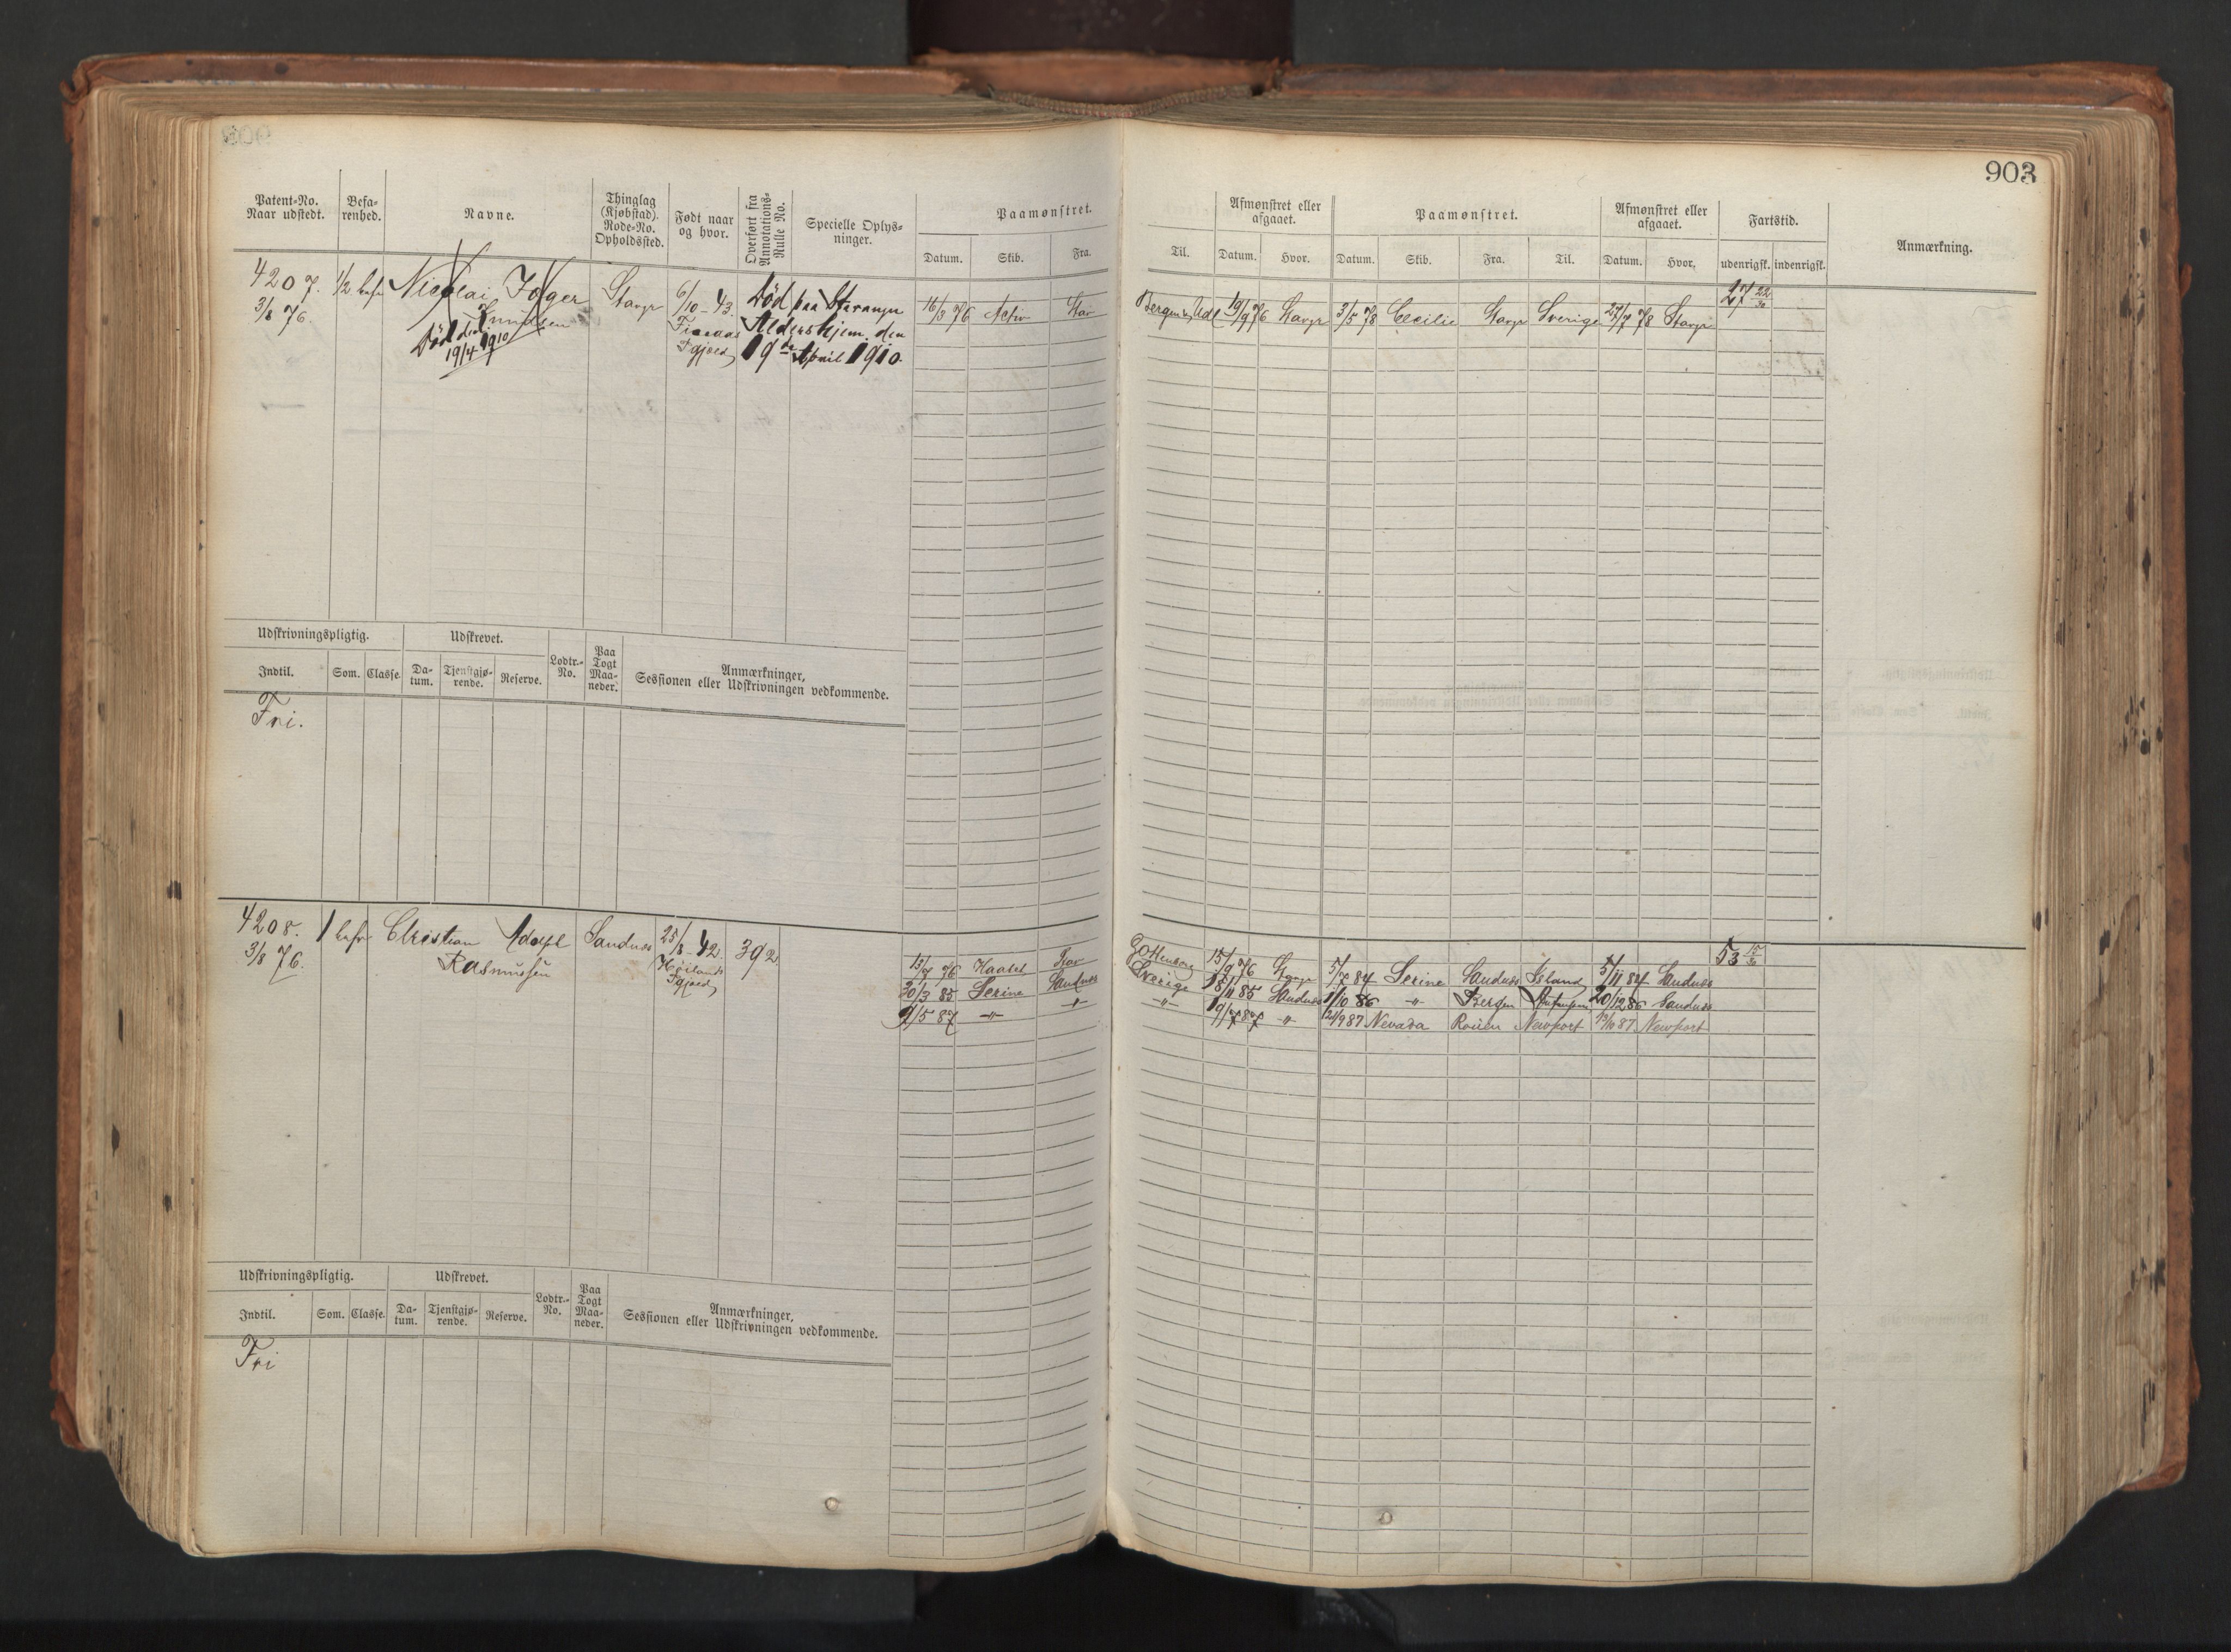 903
Patent-No. Naar udstedt.
Befa-renhed.
Navne.
Thinglag (Kjøbstad). Rode-No. Opholdssted.
Født naar og hvor.
Overført fra Annotations-Rulle No.
Specielle Oplys-ninger.
Paamønstret.
Datum. Skib. Fra. Til.
Afmønstret eller afgaaet.
Datum. Hvor.
Paamønstret.
Datum. Skib. Fra. Til.
Afmønstret eller afgaaet.
Datum. Hvor.
Fartstid.
udenrigsk. indenrigsk.
Anmærkning.
4207.
3/8 76.
1/2 befr
Nicolai Holger
Knudsen
Død den
19/4 1910
Stavgr
6/10 - 43.
Død paa Stavanger
Aldershjem den
19de April 1910
16/3 76 Activ Stav
19/9 76 Stavgr 3/5 78 Cecilie Stavgr Sverige 27/7 78 Stavgr 27 22/30
Udskrivningspligtig.
Udskrevet.
Indtil. Som. Classe.
Da-tum. Tjenstgjø-rende. Reserve.
Lodtr.-No.
Paa Togt Maa-neder.
Anmærkninger,
Sessionen eller Udskrivningen vedkommende.
Fri.
4208.
3/8 76.
1 befr
Christian Adolph
Rasmussen
Sandnes
25/8 42.
Høilands
Pgjæld
392
Gottenborg 15/9 76 Stavgr 5/7 84 Serine Sandnes Island 5/11 84 Sandnes 53 15/30
20/3 85 Serine Sandnes Sverige 18/11 85 Sandnes 1/10 86 -"- Bergen Antwerpen 20/12 86 Sandnes
9/5 87 -"- -"- -"- 19/7 87 -"- 21/9 87 Nevada Rouen Newport 13/10 87 Newport
Udskrivningspligtig.
Udskrevet.
Indtil. Som. Classe.
Da-tum. Tjenstgjø-rende. Reserve.
Lodtr.-No.
Paa Togt Maa-neder.
Anmærkninger,
Sessionen eller Udskrivningen vedkommende.
Fri